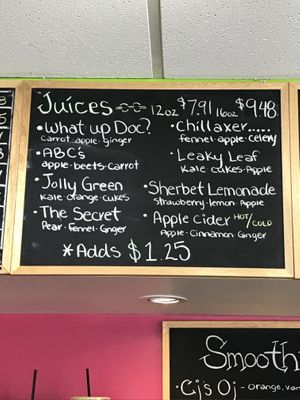 Juices 12oz $7.91 16oz $9.48
•What up Doc?
carrot•apple•ginger
•ABC's
apple•beets•carrot
•Jolly Green
Kale•orange•cukes
•The Secret
Pear•Fennel•Ginger
•Chillaxer.....
fennel•apple•celery
•Leaky Leaf
Kale•cukes•Apple
•Sherbet Lemonade
strawberry•lemon•Apple
•Apple Cider HOT/COLD
Apple•Cinnamon•Ginger
*Adds $1.25
Smoothi
•Cj's Oj - orange, van